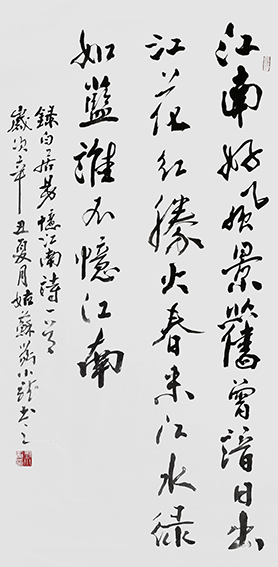 江南好風景舊曾諳日出
江花紅勝火春來江水綠
如藍誰不憶江南
錄白居易憶江南詩一首
歲次辛丑夏月姑蘇